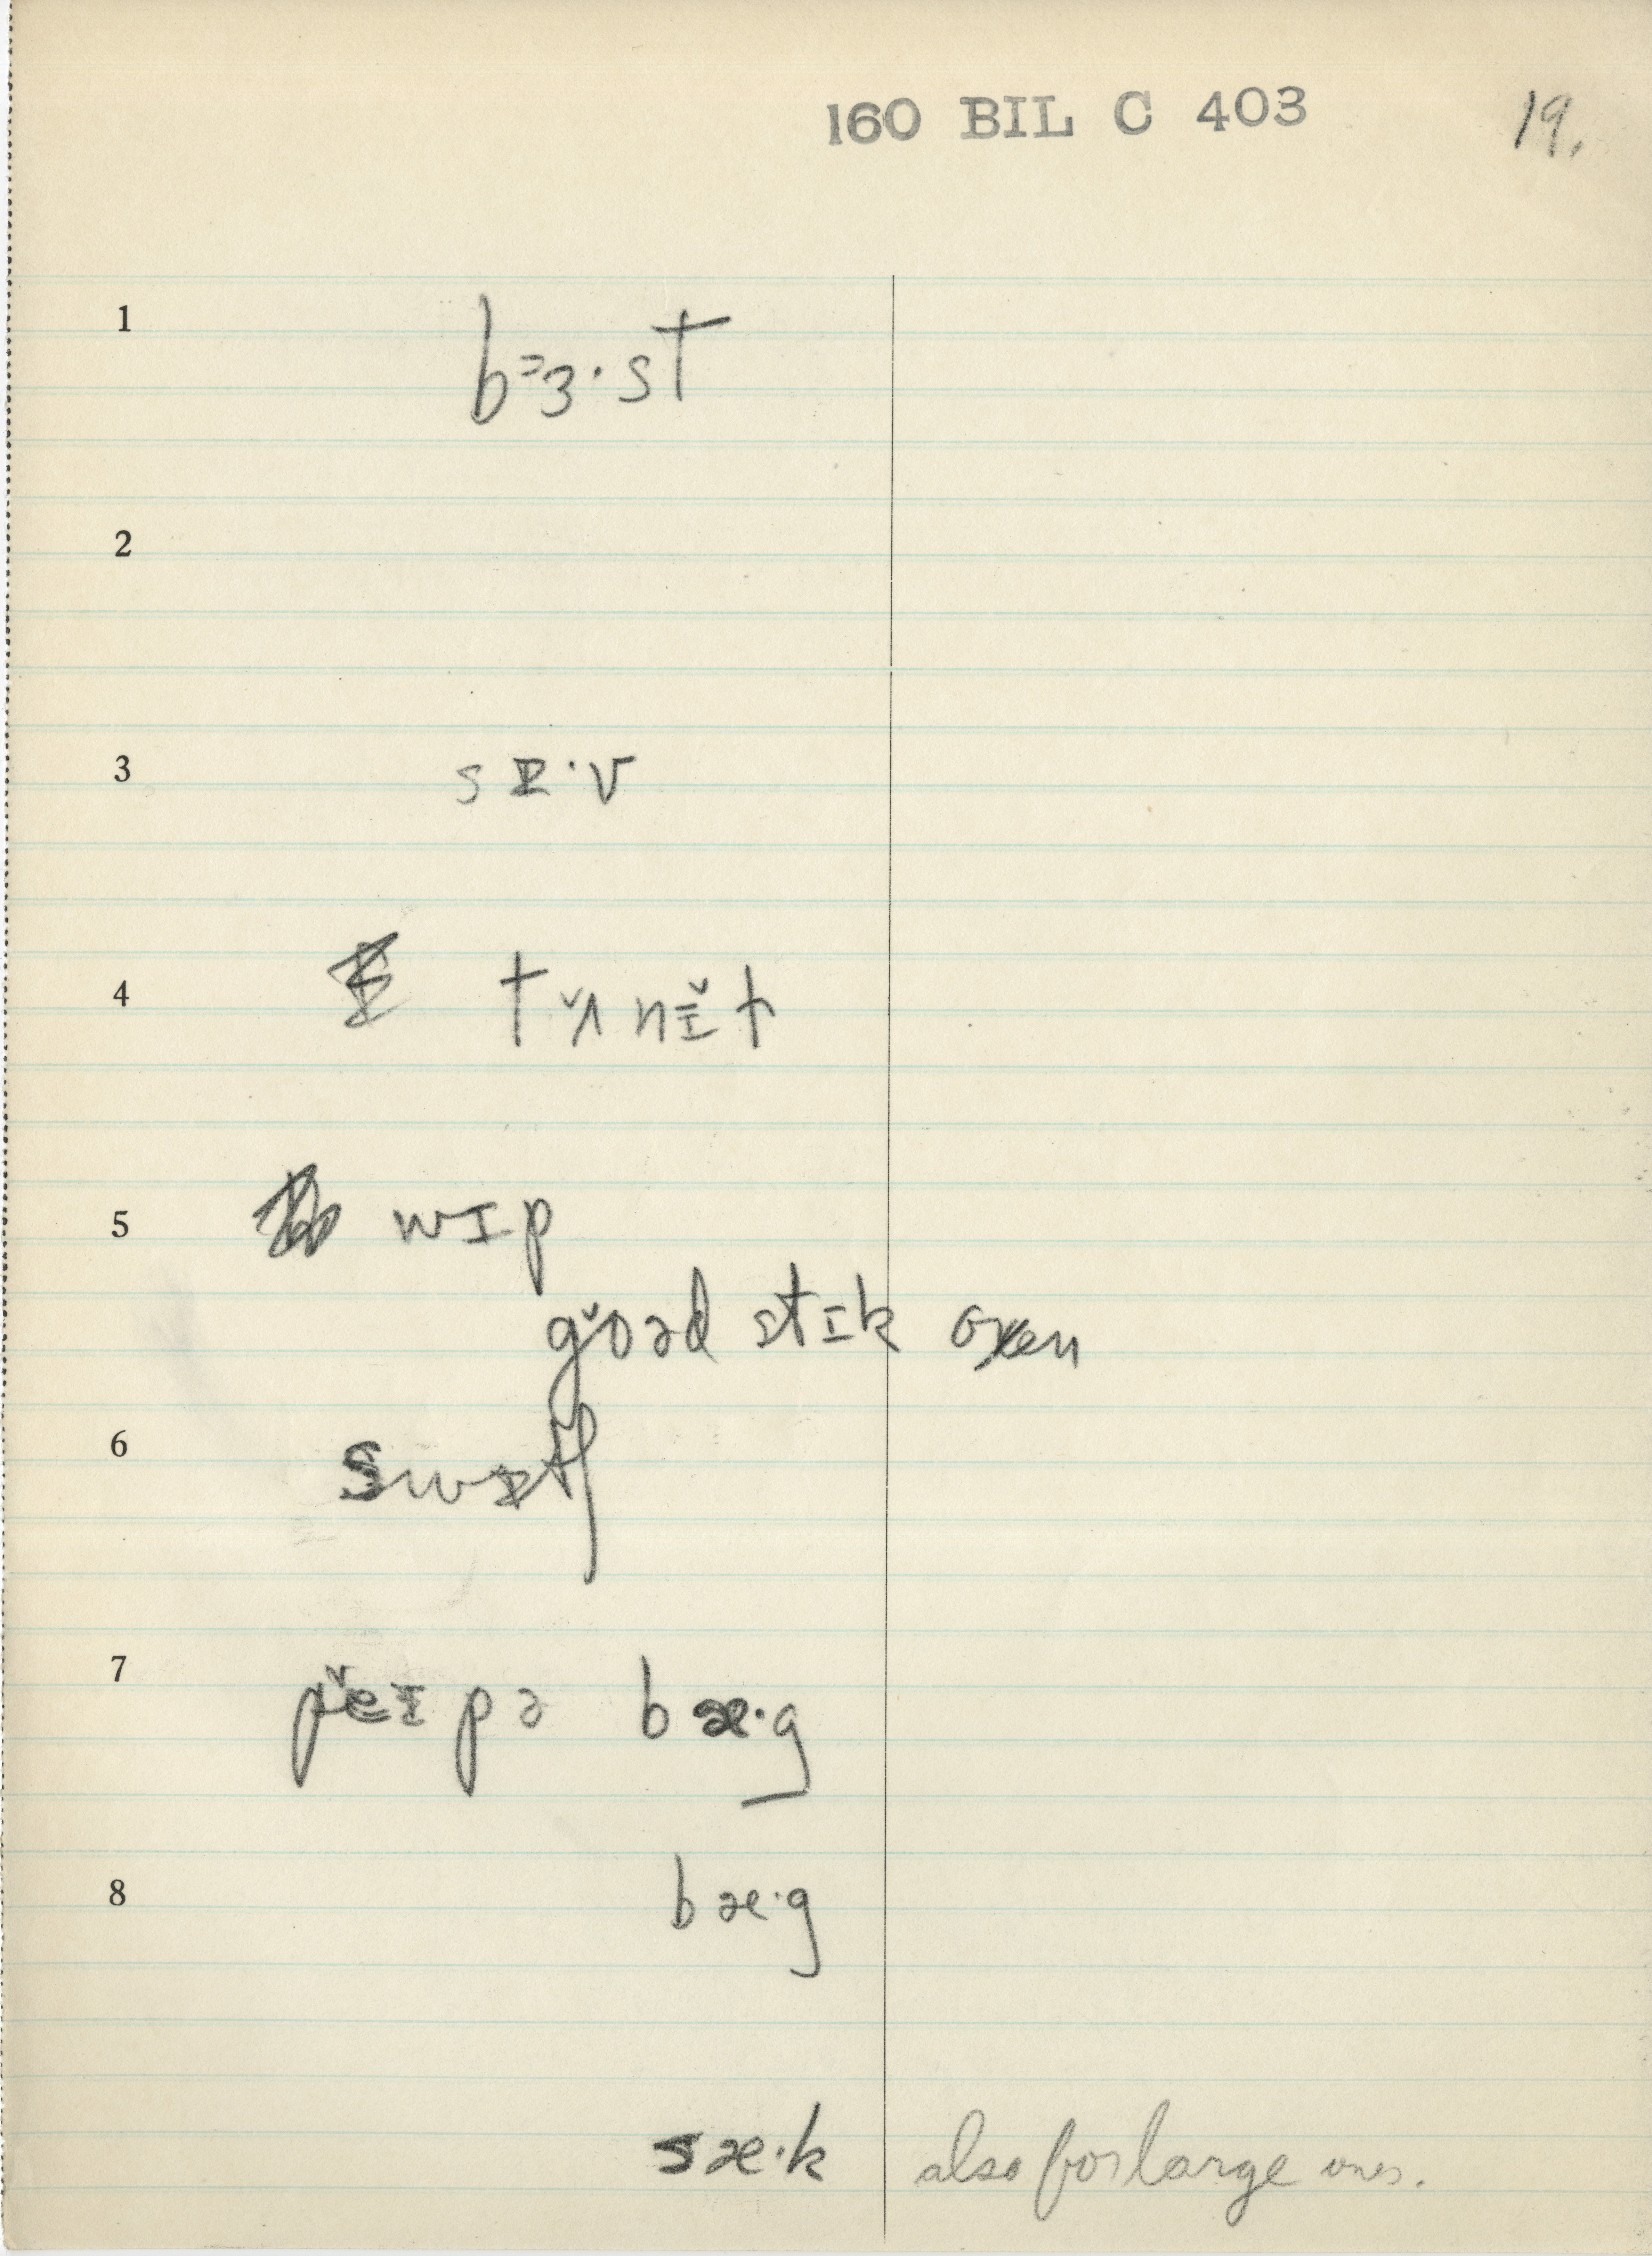 160 BIL C 403 19.
1 bᵊɜ·st
2
3 sɪ·v
4 tʌ̆nɪ̆t
5 wɪp
gŏəd stɪk oxen
6 swɪtʃ
7 pĕɪpə bæ·g
8 bæ·g
sæ·k also for large ones.